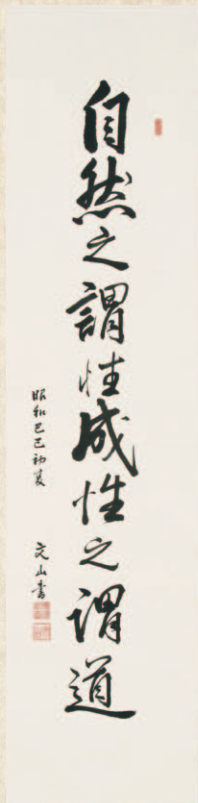 自然之謂性成性之謂道
昭和己巳初夏
文山書